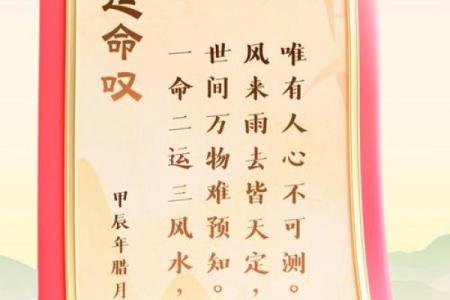 运命叹
甲辰年腊月
一命二运三风水，
世间万物难预知。
风来雨去皆天定，
唯有人心不可测。